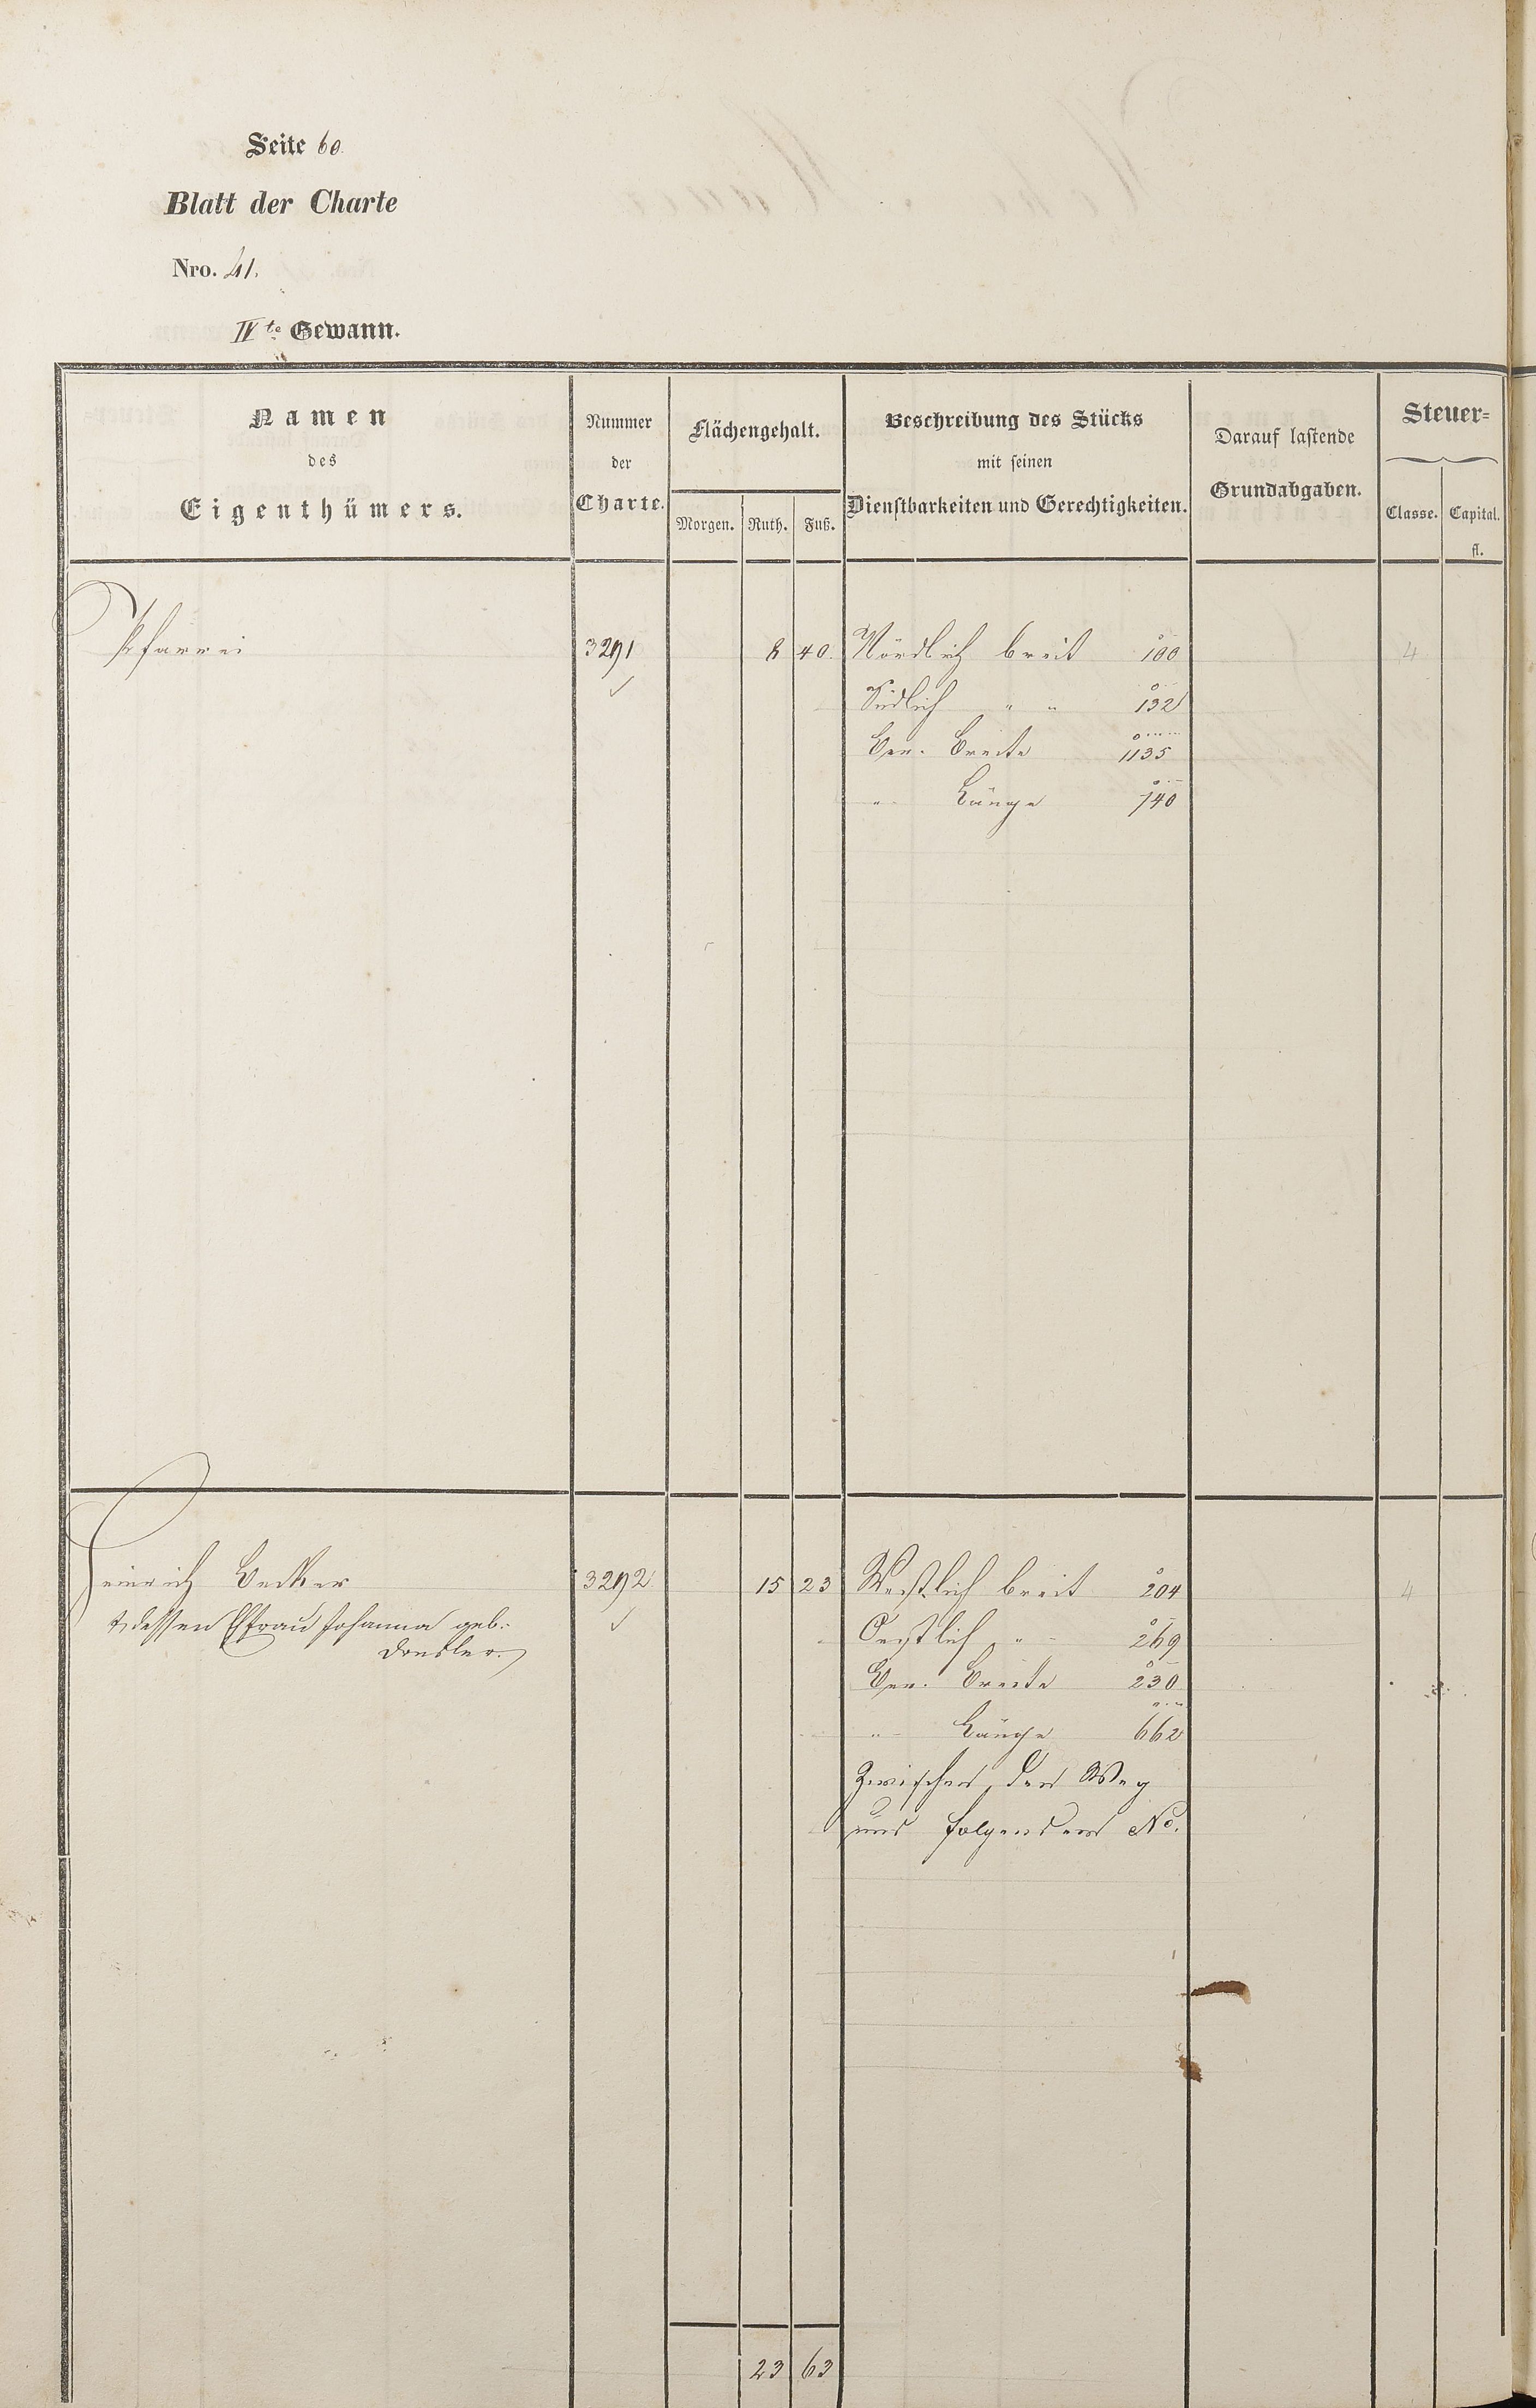 Seite 60
Blatt der Charte
Nro. 41.
IVte Gewann.
Namen
des
Eigenthümers.
Nummer
der
Charte.
Flächengehalt.
Morgen. Ruth. Fuß.
Beschreibung des Stücks
mit seinen
Dienstbarkeiten und Gerechtigkeiten.
Darauf lastende
Grundabgaben.
Steuer=
Classe. Capital.
fl.
Pfarrei 3291 8 40 Nördlich breit 100 4
Südlich " " 132
Gen. Breite 1135
" Länge 740
Heinrich Becker 3292 15 23 Westlich breit 204 4
& dessen Ehfrau Johanna geb. Oestlich " 269
Gen. Breite 230
" Länge 662
Zwischen dem Weg
und folgendem No.
23 63